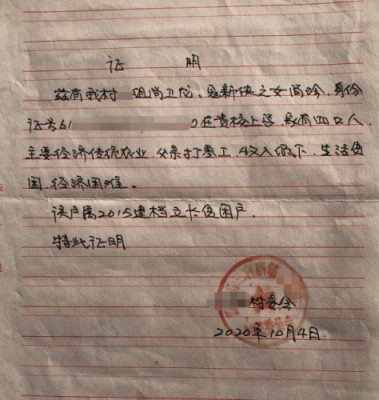 证 明
兹有我村 组尚卫龙、 之女尚 身份
证号61 0在贵校上学,家有四口人,
主要经济 农业,父亲打零工,收入低下,生活贫
困,经济困难。
该户属2015建档立卡贫困户。
特此证明
村委会
2020年10月4日.